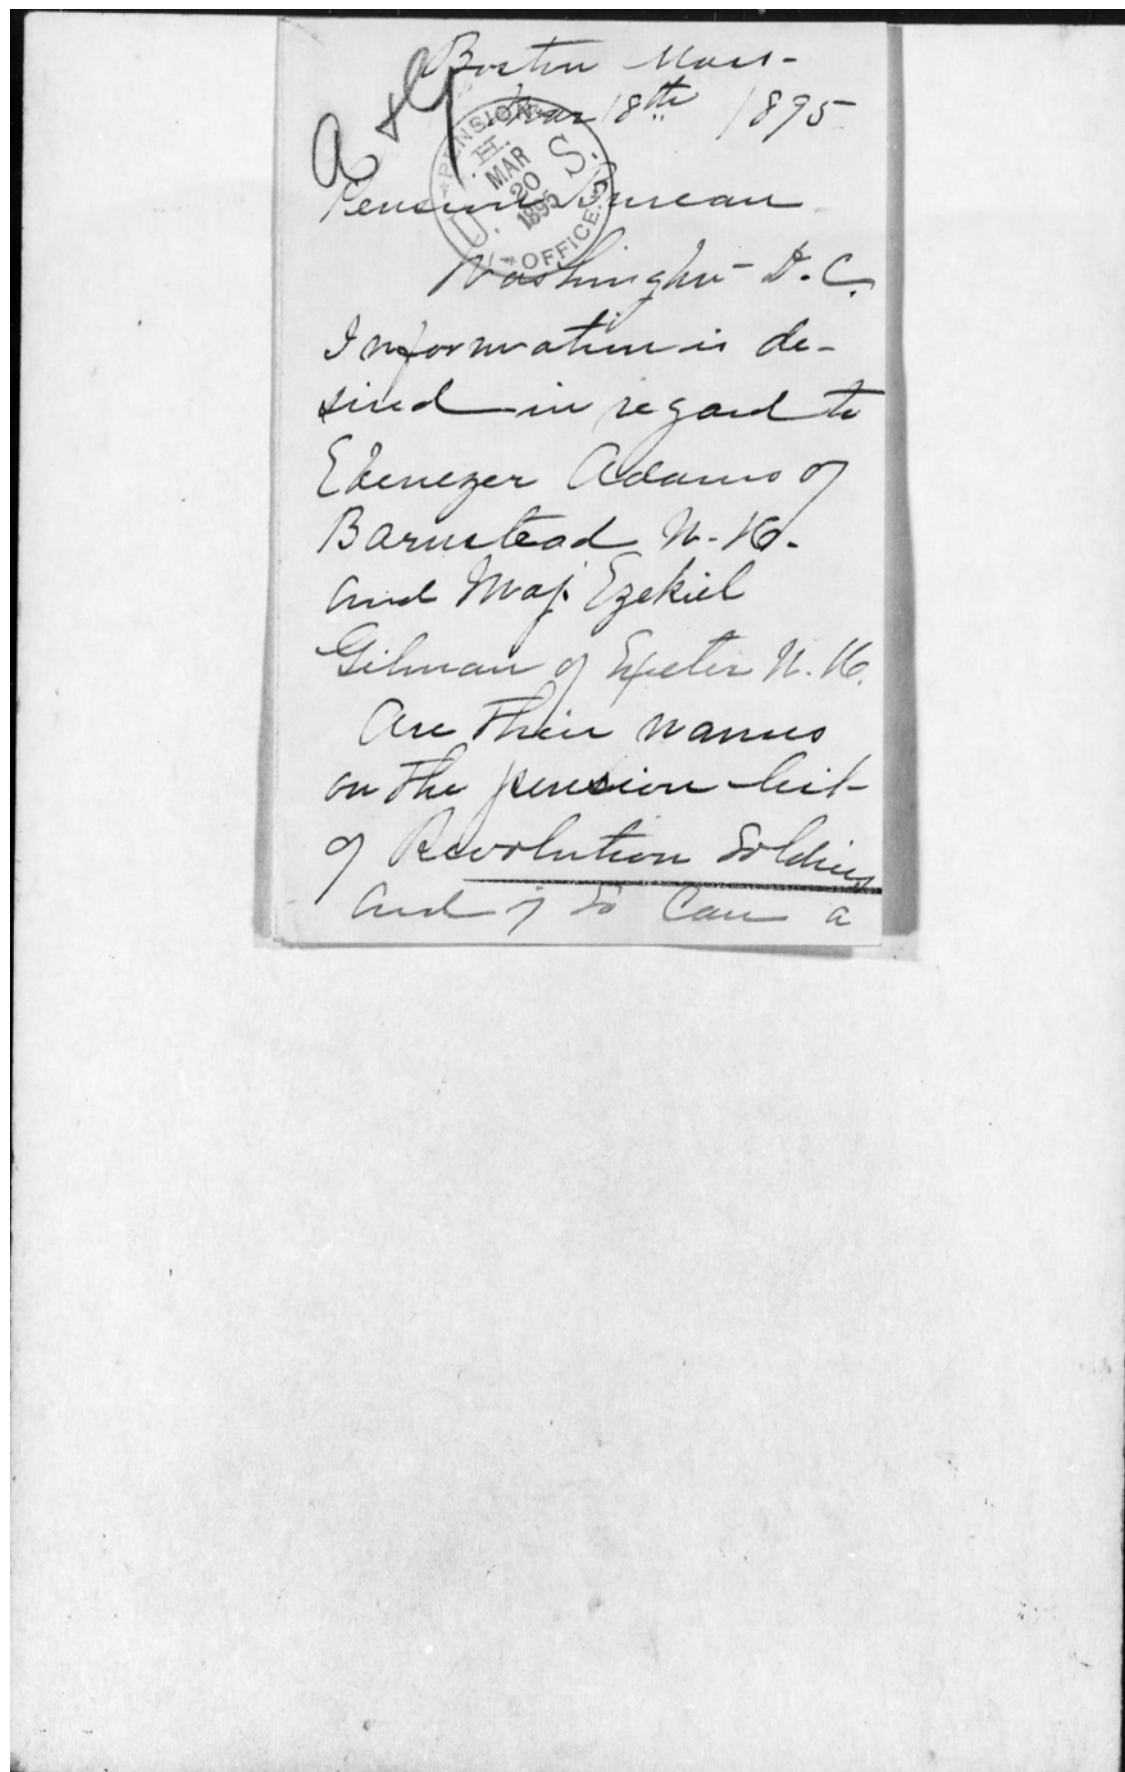 Boston Mass-
Mar 18th 1895
A & G
U. S. PENSION OFFICE.
H.
MAR
20
1895
Pension Bureau
Washington D. C.
Information is de-
sired in regard to
Ebenezer Adams of
Barnstead N. H.
and Maj. Ezekiel
Gilman of Exeter N. H.
Are Their names
on The pension list
of Revolution Soldiers
And if so Can a